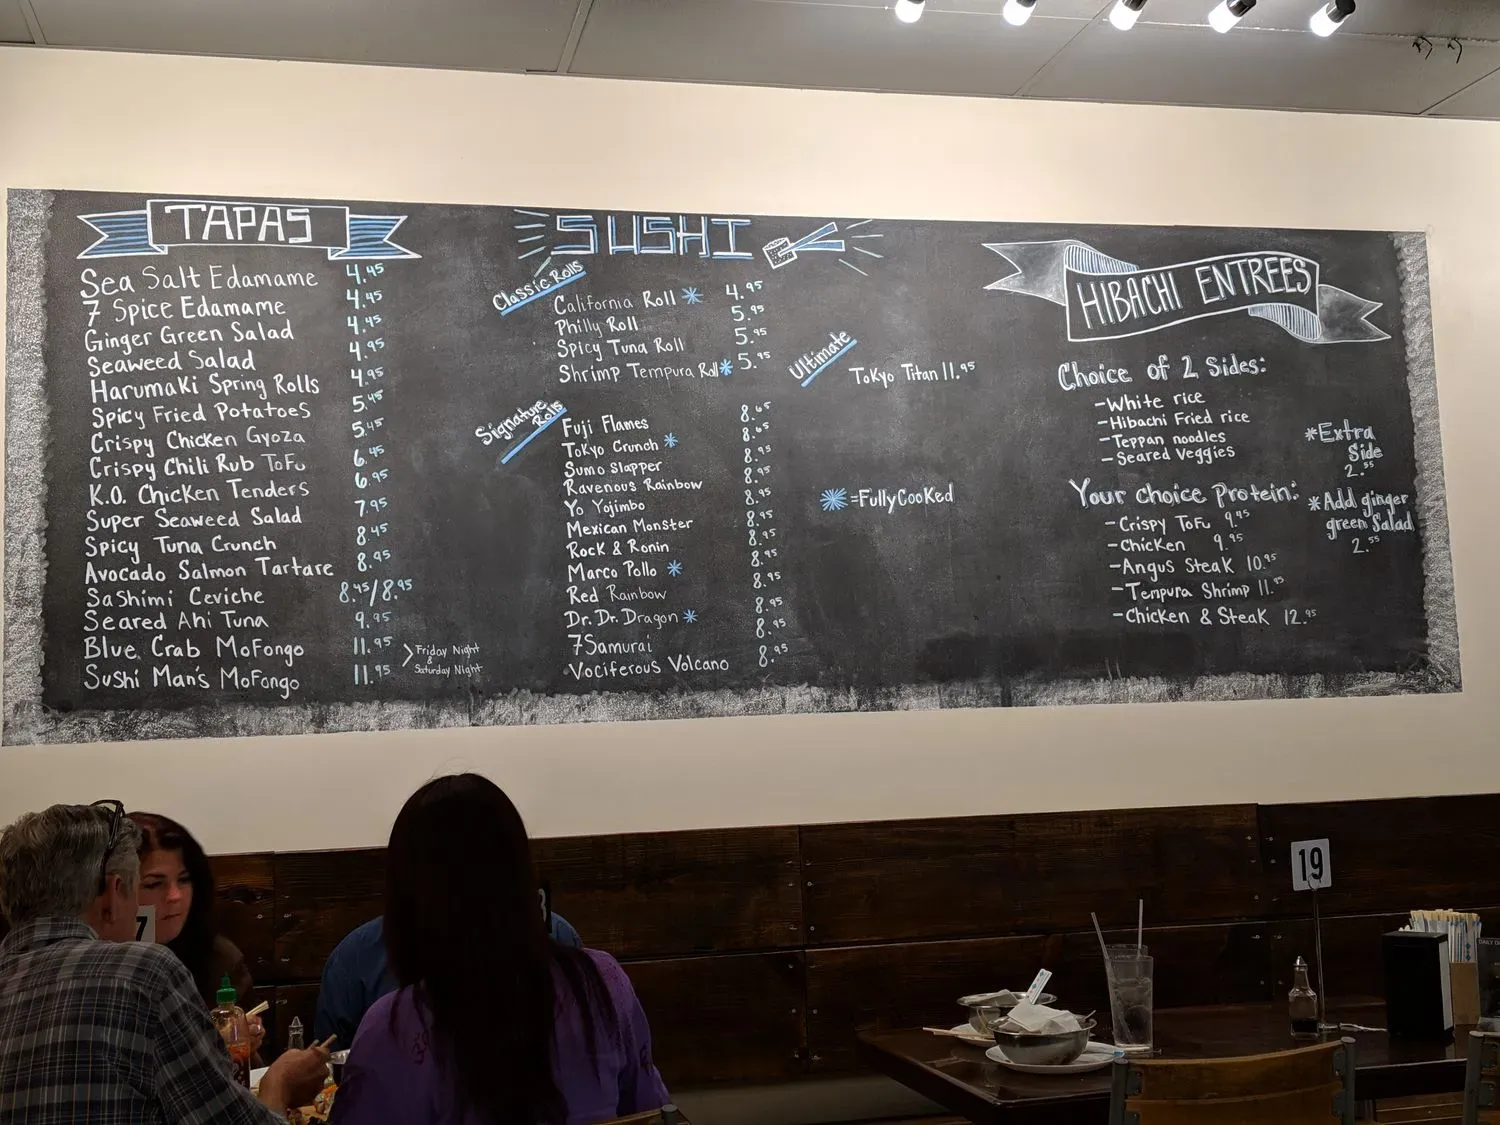 TAPAS
Sea Salt Edamame 4.45
7 Spice Edamame 4.45
Ginger Green Salad 4.45
Seaweed Salad 4.95
Harumaki Spring Rolls 4.95
Spicy Fried Potatoes 5.45
Crispy Chicken Gyoza 5.45
Crispy Chili Rub ToFu 6.45
K.O. Chicken Tenders 6.95
Super Seaweed Salad 7.95
Spicy Tuna Crunch 8.45
Avocado Salmon Tartare 8.95
Sashimi Ceviche 8.45/8.95
Seared Ahi Tuna 9.95
Blue Crab MoFongo 11.95
Sushi Man's MoFongo 11.95
> Friday Night
&
Saturday Night
SUSHI
Classic Rolls
California Roll * 4.95
Philly Roll 5.95
Spicy Tuna Roll 5.95
Shrimp Tempura Roll * 5.95
Signature
Rolls
Fuji Flames 8.65
Tokyo Crunch * 8.65
Sumo Slapper 8.95
Ravenous Rainbow 8.95
Yo Yojimbo 8.95
Mexican Monster 8.95
Rock & Ronin 8.95
Marco Pollo * 8.95
Red Rainbow 8.95
Dr. Dr. Dragon * 8.95
7 Samurai 8.95
Vociferous Volcano 8.95
Ultimate
Tokyo Titan 11.95
* = Fully Cooked
HIBACHI ENTREES
Choice of 2 Sides:
- White rice
- Hibachi Fried rice
- Teppan noodles
- Seared Veggies
Your choice Protein:
- Crispy ToFu 9.95
- Chicken 9.95
- Angus Steak 10.95
- Tempura Shrimp 11.95
- Chicken & Steak 12.95
* Extra
Side
2.55
* Add ginger
green Salad
2.55
7
19